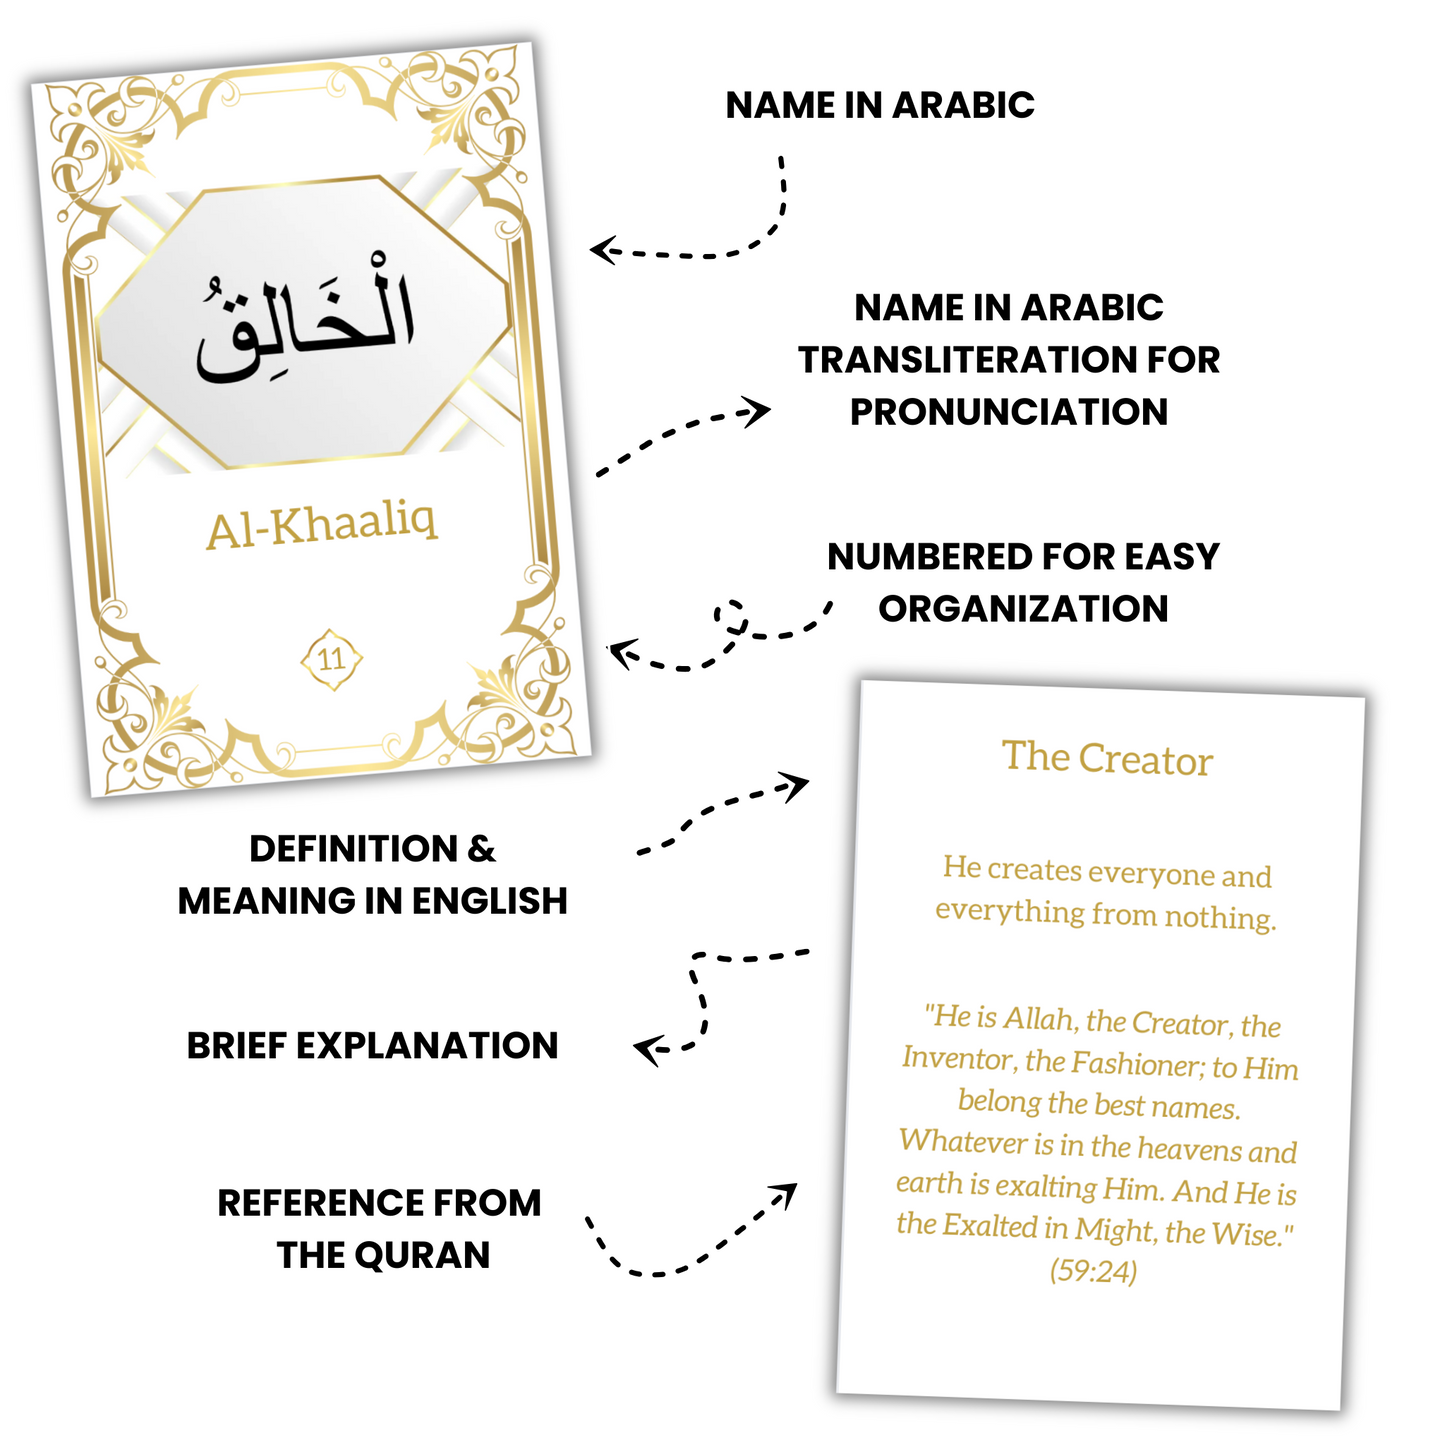 NAME IN ARABIC
الْخَالِقُ
Al-Khaaliq
11
NAME IN ARABIC
TRANSLITERATION FOR
PRONUNCIATION
NUMBERED FOR EASY
ORGANIZATION
DEFINITION &
MEANING IN ENGLISH
BRIEF EXPLANATION
REFERENCE FROM
THE QURAN
The Creator
He creates everyone and
everything from nothing.
"He is Allah, the Creator, the
Inventor, the Fashioner; to Him
belong the best names.
Whatever is in the heavens and
earth is exalting Him. And He is
the Exalted in Might, the Wise."
(59:24)